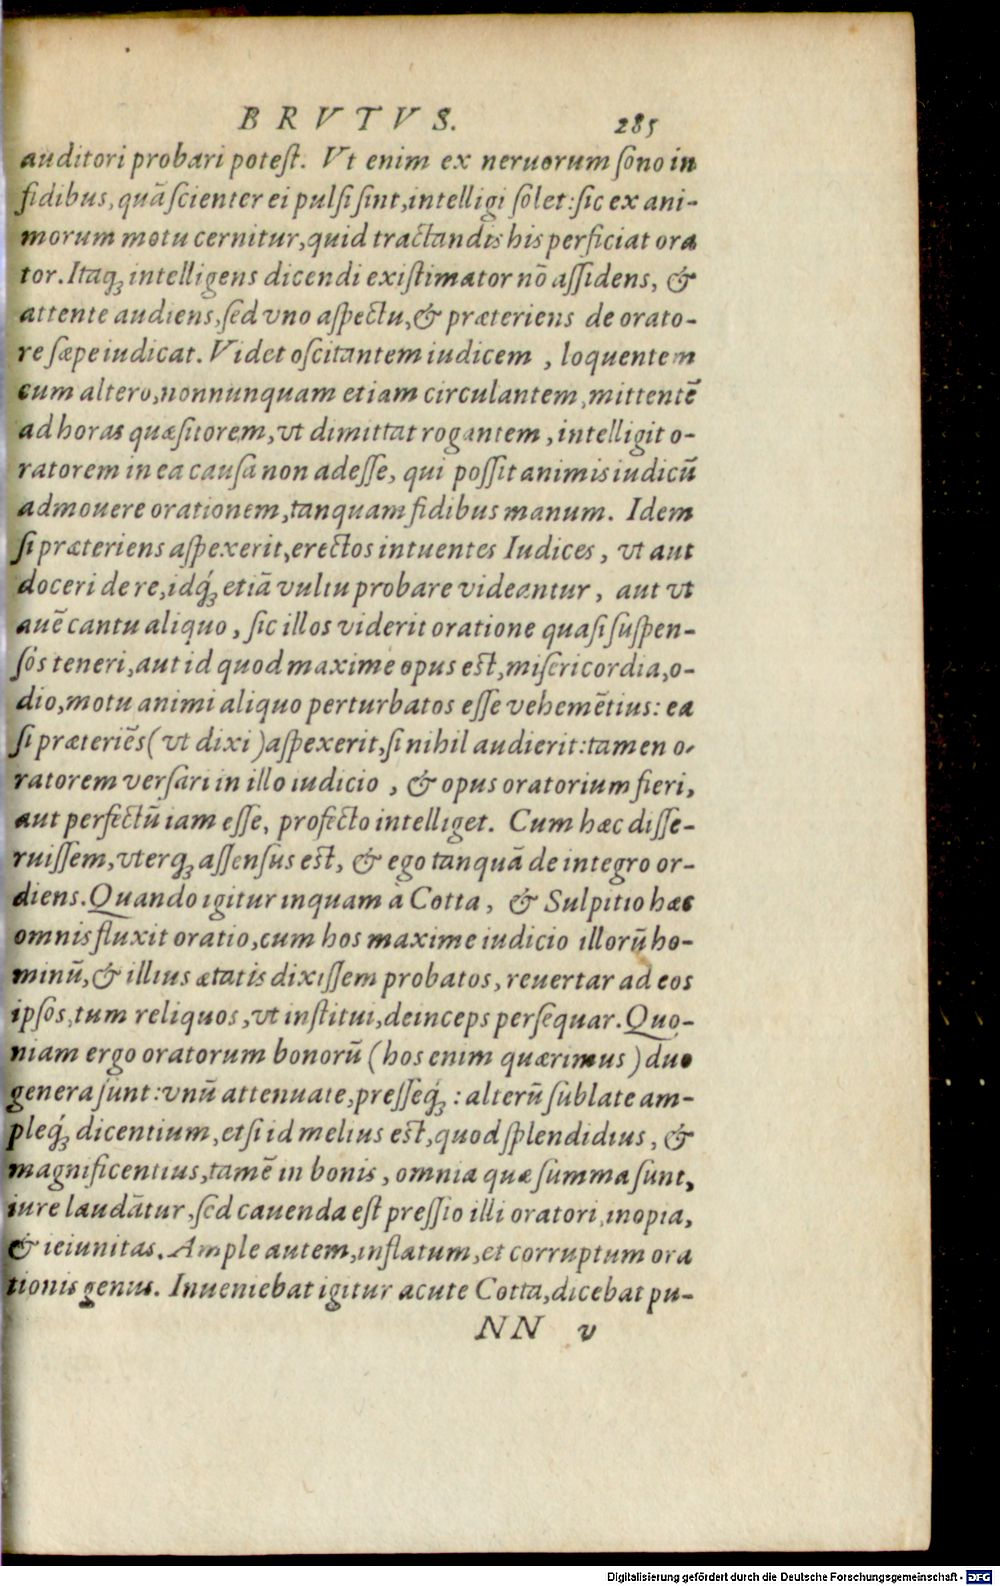 BRVTVS. 285
auditori probari potest. Vt enim ex neruorum sono in
fidibus, quã scienter ei pulsi sint, intelligi solet: sic ex ani-
morum motu cernitur, quid tractandis his perficiat ora
tor. Itaq; intelligens dicendi existimator nõ assidens, &
attente audiens, sed vno aspectu, & præteriens de orato-
re sæpe iudicat. Videt oscitantem iudicem, loquentem
cum altero, nonnunquam etiam circulantem, mittentẽ
ad horas quæsitorem, vt dimittat rogantem, intelligit o-
ratorem in ea causa non adesse, qui possit animis iudicũ
admouere orationem, tanquam fidibus manum. Idem
si præteriens aspexerit, erectos intuentes Iudices, vt aut
doceri de re, idq́; etiã vultu probare videantur, aut vt
auẽ cantu aliquo, sic illos viderit oratione quasi suspen-
sos teneri, aut id quod maxime opus est, misericordia, o-
dio, motu animi aliquo perturbatos esse vehemẽtius: ea
si præteriẽs (vt dixi) aspexerit, si nihil audierit: tamen o-
ratorem versari in illo iudicio, & opus oratorium fieri,
aut perfectũ iam esse, profecto intelliget. Cum hæc disse-
ruissem, vterq; assensus est, & ego tanquã de integro or-
diens. Quando igitur inquam à Cotta, & Sulpitio hæc
omnis fluxit oratio, cum hos maxime iudicio illorũ ho-
minũ, & illius ætatis dixissem probatos, reuertar ad eos
ipsos, tum reliquos, vt institui, deinceps persequar. Quo-
niam ergo oratorum bonorũ (hos enim quærimus) duo
genera sunt: vnũ attenuate, presseq́; : alterũ sublate am-
pleq́; dicentium, etsi id melius est, quod splendidius, &
magnificentius, tamẽ in bonis, omnia quæ summa sunt,
iure laudãtur, sed cauenda est pressio illi oratori, inopia,
& ieiunitas. Ample autem, inflatum, et corruptum ora
tionis genus. Inueniebat igitur acute Cotta, dicebat pu-
NN v
Digitalisierung gefördert durch die Deutsche Forschungsgemeinschaft - DFG